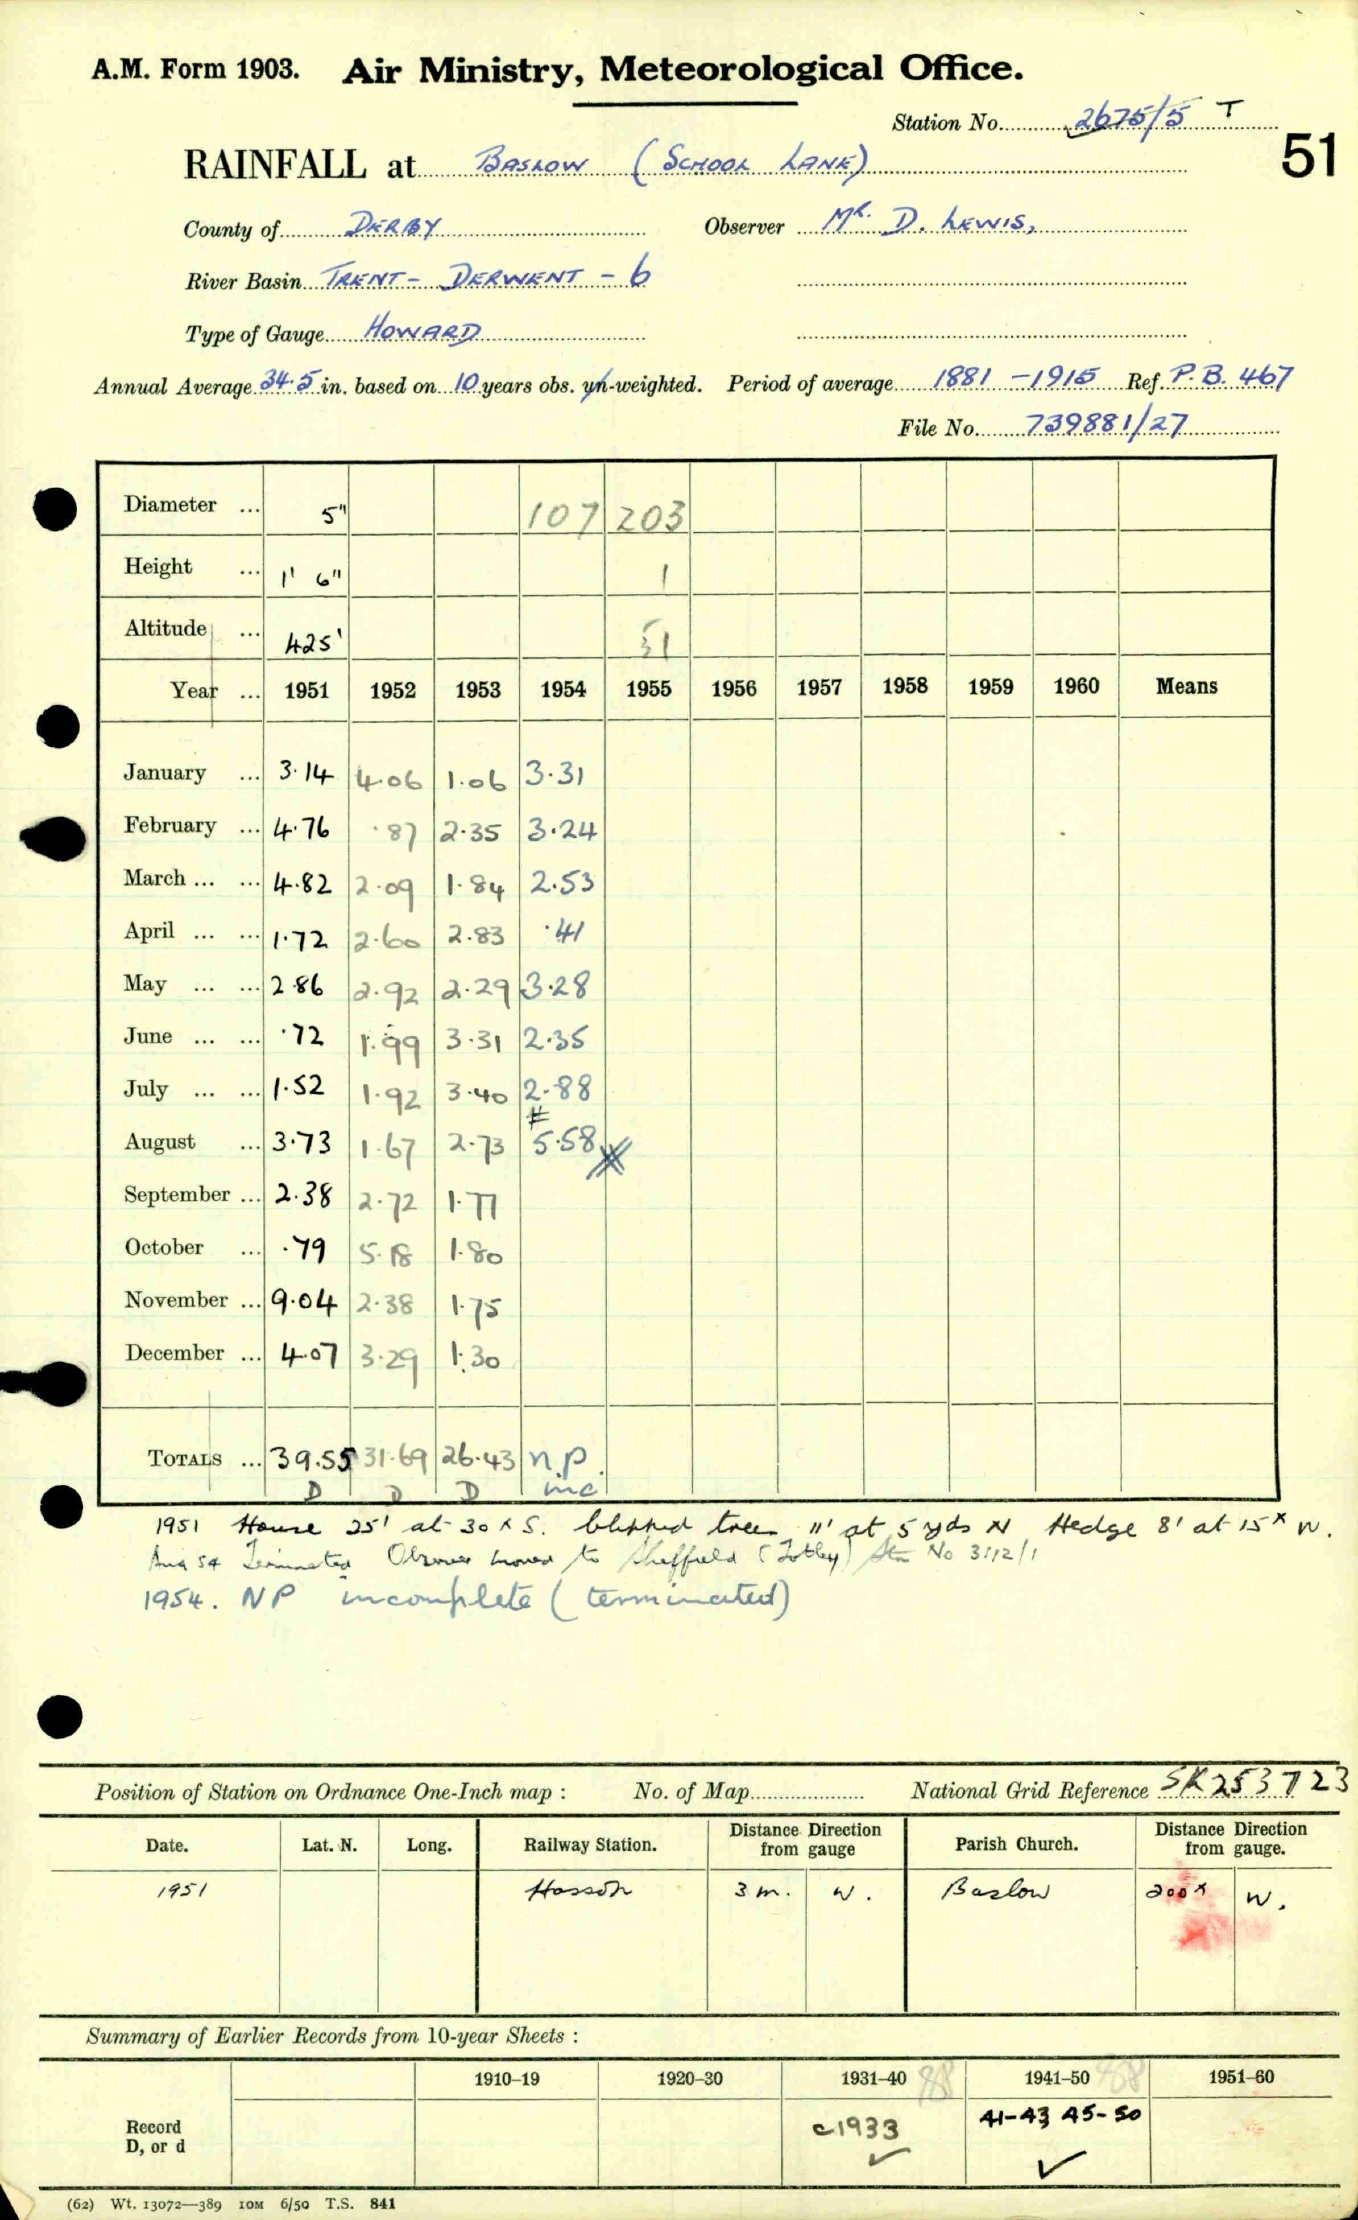 A.M. Form 1903. Air Ministry, Meteorological Office.
Station No. 2675/5 T
51
RAINFALL at BASLOW (SCHOOL LANE)
County of DERBY Observer MR. D. LEWIS,
River Basin TRENT - DERWENT - 6
Type of Gauge HOWARD
Annual Average 34.5 in. based on 10 years obs. un-weighted. Period of average 1881 - 1915 Ref. P.B. 467
File No. 739881/27
Diameter ... 5" 107 203
Height ... 1' 6" 1
Altitude ... 425' 51
Year ... 1951 1952 1953 1954 1955 1956 1957 1958 1959 1960 Means
January ... 3.14 4.06 1.06 3.31
February ... 4.76 .87 2.35 3.24
March ... ... 4.82 2.09 1.84 2.53
April ... ... 1.72 2.60 2.83 .41
May ... ... 2.86 2.92 2.29 3.28
June ... ... .72 1.99 3.31 2.35
July ... ... 1.52 1.92 3.40 2.88
August ... 3.73 1.67 2.73 5.58
September ... 2.38 2.72 1.77
October ... .79 5.18 1.80
November ... 9.04 2.38 1.75
December ... 4.07 3.29 1.30
TOTALS ... 39.55 31.69 26.43 n.p.
D D D inc
1951 House 25' at 30x S. clipped tree 11' at 5 yds N Hedge 8' at 15x W.
Aug 54 Terminated Observer moved to Sheffield (Totley) Stn No 3112/1
1954. NP incomplete (terminated)
Position of Station on Ordnance One-Inch map : No. of Map National Grid Reference SK253723
Date. Lat. N. Long. Railway Station. Distance Direction from gauge Parish Church. Distance Direction from gauge.
1951 Hassop 3 m. W. Baslow 200x W.
Summary of Earlier Records from 10-year Sheets :
1910–19 1920–30 1931–40 88 1941–50 88 1951–60
Record D, or d c1933 41-43 45-50
(62) Wt. 13072—389 10M 6/50 T.S. 841